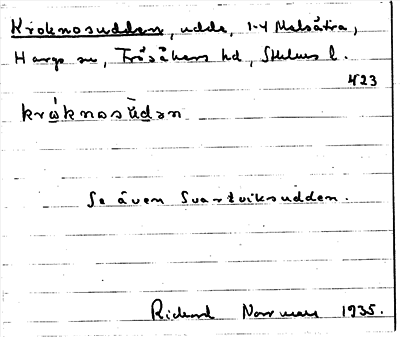 Kroknosudden, udde, 1-4 Malsätra,
Hargs sn, Frösåkers hd, Sthlms l.
423
krὼknosùdən
Se även Svartviksudden.
Rickard 1935.